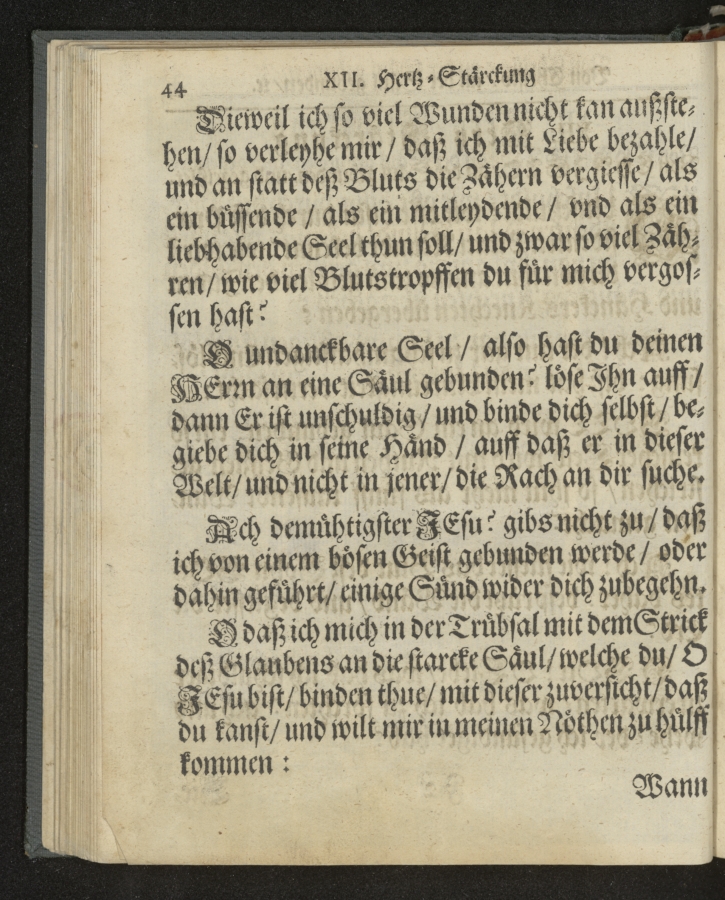 44
XII. Hertz-Stärckung
Dieweil ich so viel Wunden nicht kan außste-
hen/ so verleyhe mir / daß ich mit Liebe bezahle/
und an statt deß Bluts die Zähern vergiesse / als
ein büssende / als ein mitleydende / vnd als ein
liebhabende Seel thun soll/ und zwar so viel Zäh-
ren/ wie viel Blutstropffen du für mich vergos-
sen hast?
O undanckbare Seel / also hast du deinen
HErrn an eine Säul gebunden? löse Ihn auff/
dann Er ist unschuldig / und binde dich selbst / be-
giebe dich in seine Händ / auff daß er in dieser
Welt/ und nicht in jener/ die Rach an dir suche.
Ach demühtigster JEsu? gibs nicht zu / daß
ich von einem bösen Geist gebunden werde / oder
dahin geführt/ einige Sünd wider dich zubegehn.
O daß ich mich in der Trübsal mit dem Strick
deß Glaubens an die starcke Säul/ welche du/ O
JEsu bist/ binden thue/ mit dieser zuversicht/ daß
du kanst/ und wilt mir in meinen Nöthen zu hülff
kommen :
Wann